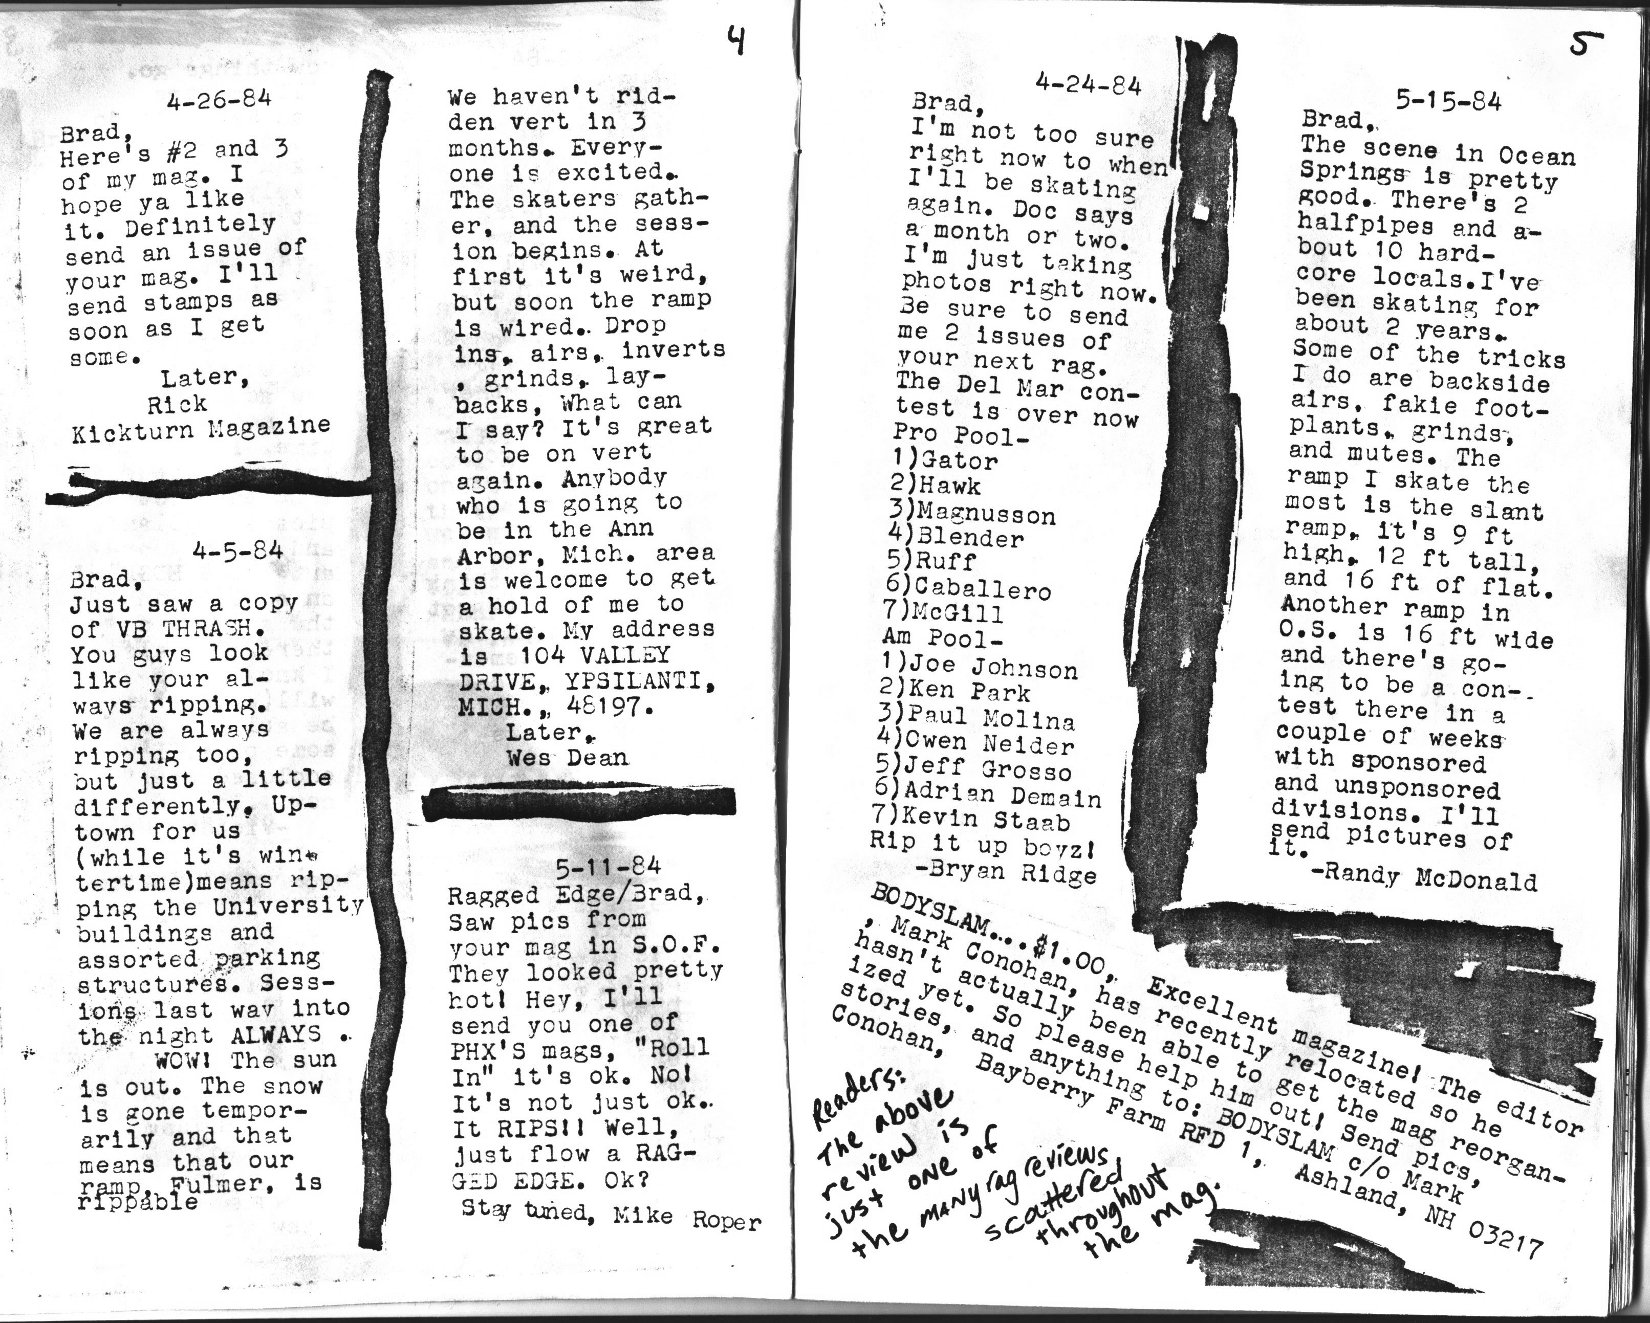 4
4-26-84
Brad,
Here's #2 and 3
of my mag. I
hope ya like
it. Definitely
send an issue of
your mag. I'll
send stamps as
soon as I get
some.
Later,
Rick
Kickturn Magazine
4-5-84
Brad,
Just saw a copy
of VB THRASH.
You guys look
like your al-
ways ripping.
We are always
ripping too,
but just a little
differently. Up-
town for us
(while it's win-
tertime)means rip-
ping the University
buildings and
assorted parking
structures. Sess-
ions last way into
the night ALWAYS .
WOW! The sun
is out. The snow
is gone tempor-
arily and that
means that our
ramp, Fulmer, is
rippable
We haven't rid-
den vert in 3
months. Every-
one is excited.
The skaters gath-
er, and the sess-
ion begins. At
first it's weird,
but soon the ramp
is wired. Drop
ins, airs, inverts
, grinds, lay-
backs, What can
I say? It's great
to be on vert
again. Anybody
who is going to
be in the Ann
Arbor, Mich. area
is welcome to get
a hold of me to
skate. My address
is 104 VALLEY
DRIVE, YPSILANTI,
MICH., 48197.
Later,
Wes Dean
5-11-84
Ragged Edge/Brad,
Saw pics from
your mag in S.O.F.
They looked pretty
hot! Hey, I'll
send you one of
PHX'S mags, "Roll
In" it's ok. No!
It's not just ok.
It RIPS!! Well,
just flow a RAG-
GED EDGE. Ok?
Stay tuned, Mike Roper
5
4-24-84
Brad,
I'm not too sure
right now to when
I'll be skating
again. Doc says
a month or two.
I'm just taking
photos right now.
Be sure to send
me 2 issues of
your next rag.
The Del Mar con-
test is over now
Pro Pool-
1)Gator
2)Hawk
3)Magnusson
4)Blender
5)Ruff
6)Caballero
7)McGill
Am Pool-
1)Joe Johnson
2)Ken Park
3)Paul Molina
4)Owen Neider
5)Jeff Grosso
6)Adrian Demain
7)Kevin Staab
Rip it up boyz!
-Bryan Ridge
5-15-84
Brad,
The scene in Ocean
Springs is pretty
good. There's 2
halfpipes and a-
bout 10 hard-
core locals.I've
been skating for
about 2 years.
Some of the tricks
I do are backside
airs, fakie foot-
plants, grinds,
and mutes. The
ramp I skate the
most is the slant
ramp, it's 9 ft
high, 12 ft tall,
and 16 ft of flat.
Another ramp in
O.S. is 16 ft wide
and there's go-
ing to be a con-
test there in a
couple of weeks
with sponsored
and unsponsored
divisions. I'll
send pictures of
it.
-Randy McDonald
BODYSLAM...$1.00, Excellent magazine! The editor
, Mark Conohan, has recently relocated so he
hasn't actually been able to get the mag reorgan-
ized yet. So please help him out! Send pics,
stories, and anything to: BODYSLAM c/o Mark
Conohan, Bayberry Farm RFD 1, Ashland, NH 03217
Readers:
The above
review is
just one of
the MANY rag reviews,
scattered
throughout
the mag.